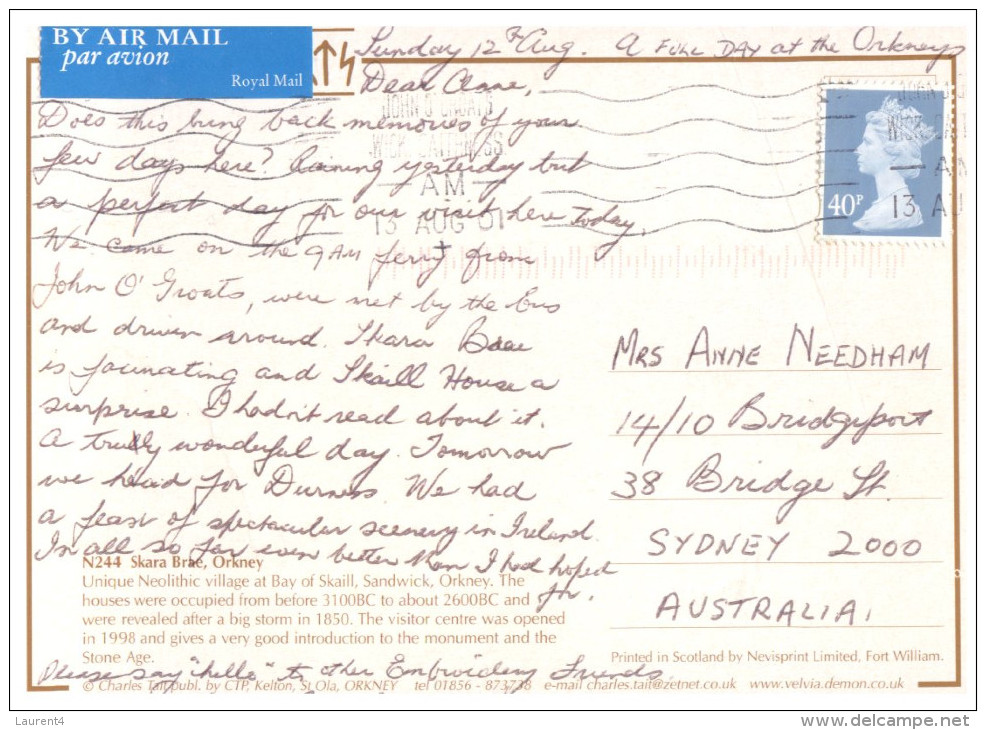 BY AIR MAIL
par avion
Royal Mail
Sunday 12th Aug. A FULL DAY at the Orkneys
Dear Anne,
Does this bring back memories of your
few days here? Raining yesterday but
a perfect day for our visit here today.
We came on the 9AM ferry from
John O' Groats, were met by the bus
and driven around. Skara Brae
is fascinating and Skaill House a
surprise. I hadn't read about it.
A truly wonderful day. Tomorrow
we head for Durness. We had
a feast of spectacular scenery in Ireland.
In all so far even better than I had hoped
for.
Please say "hello" to other Embroidery Friends
JOHN O'GROATS
WICK CAITHNESS
AM
13 AUG 01
40P
WICK CAI
AM
13 AU
MRS ANNE NEEDHAM
14/10 Bridgeport
38 Bridge St.
SYDNEY 2000
AUSTRALIA.
N244 Skara Brae, Orkney
Unique Neolithic village at Bay of Skaill, Sandwick, Orkney. The
houses were occupied from before 3100BC to about 2600BC and
were revealed after a big storm in 1850. The visitor centre was opened
in 1998 and gives a very good introduction to the monument and the
Stone Age.
Printed in Scotland by Nevisprint Limited, Fort William.
© Charles Tait publ. by CTP, Kelton, St Ola, ORKNEY tel 01856 - 873738 e-mail charles.tait@zetnet.co.uk www.velvia.demon.co.uk
Laurent4
www.delcampe.net